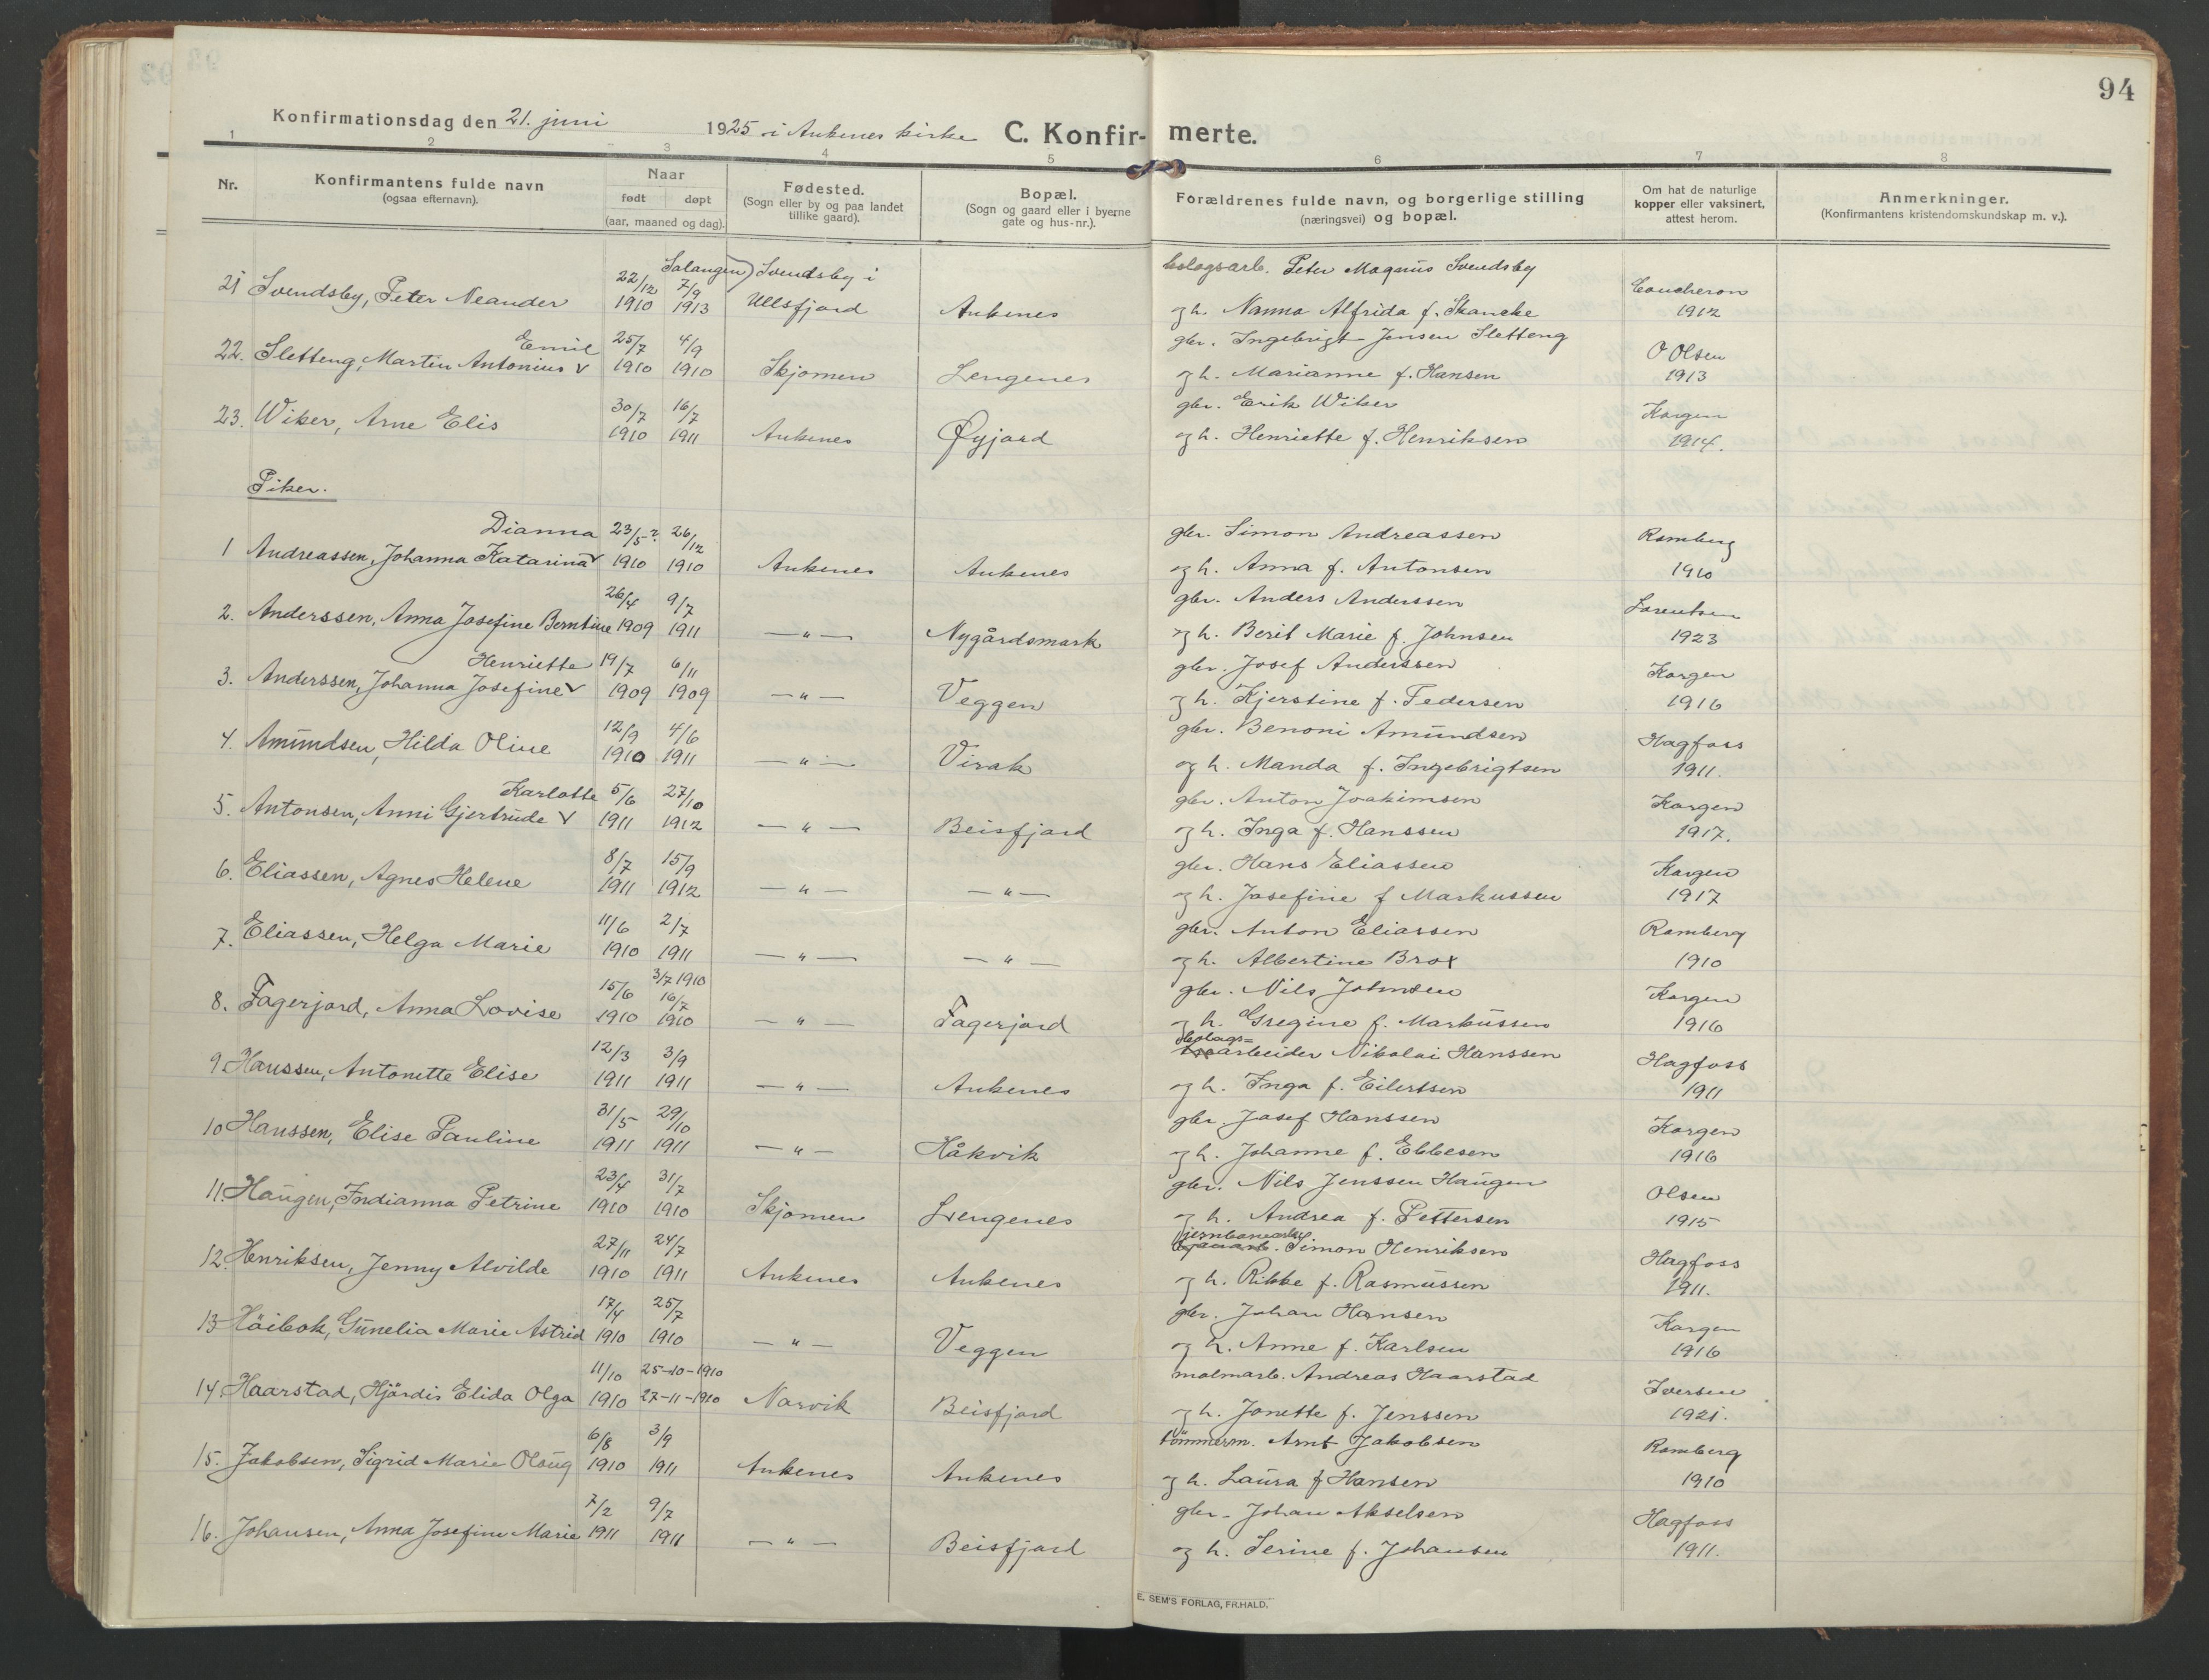 94
Konfirmationsdag den 21. juni 1925 i Ankenes kirke C. Konfir- merte.
1 2 3 4 5 6 7 8
Nr. Konfirmantens fulde navn (ogsaa efternavn). Naar født døpt (aar, maaned og dag). Fødested. (Sogn eller by og paa landet tillike gaard). Bopæl. (Sogn og gaard eller i byerne gate og hus-nr.). Forældrenes fulde navn, og borgerlige stilling (næringsvei) og bopæl. Om hat de naturlige kopper eller vaksinert, attest herom. Anmerkninger. (Konfirmantens kristendomskundskap m. v.).
22/12 Salangen 7/9 Svendsby i bolagsarb. Peter Magnus Svendsby
21 Svendsby, Peter Neander 1910 1913 Ullsfjord Ankenes og h. Nanna Alfrida f. Skancke Coucheron 1912
Emil 25/7 4/9 gbr. Ingebrigt Jensen Sletteng
22. Sletteng, Martin Antonius v 1910 1910 Skjomen Lengenes og h. Marianne f. Hansen O Olsen 1913
30/7 16/7 gbr. Erik Wiker
23. Wiker, Arne Elis 1910 1911 Ankenes Øyjord og h. Henriette f. Henriksen Korgen 1914.
Piker.
Dianna 23/5? 26/12 gbr. Simon Andreassen
1 Andreassen, Johanna Katarina v 1910 1910 Ankenes Ankenes og h. Anna f. Antonsen Ramberg 1910
26/4 9/7 gbr. Anders Anderssen
2. Anderssen, Anna Josefine Berntine 1909 1911 — " — Nygårdsmark og h. Berit Marie f. Johnsen Lorentsen 1923
Henriette 19/7 6/11 gbr. Josef Anderssen
3. Anderssen, Johanna Josefine v 1909 1909 — " — Veggen og h. Kjerstine f. Pedersen Korgen 1916
12/9 4/6 gbr. Benoni Amundsen
4. Amundsen, Hilda Oline 1910 1911 — " — Virak og h. Manda f. Ingebrigtsen Hagfoss 1911.
Karlotte 5/6 27/10 gbr. Anton Joakimsen
5. Antonsen, Anni Gjertrude v 1911 1912 — " — Beisfjord og h. Inga f. Hanssen Korgen 1917.
8/7 15/9 gbr. Hans Eliassen
6. Eliassen, Agnes Helene 1911 1912 — " — — " — og h. Josefine f Markussen Korgen 1917
11/6 2/7 gbr. Anton Eliassen
7. Eliassen, Helga Marie 1910 1911 — " — — " — og h. Albertine Brox Ramberg 1910
15/6 3/7 1910 16/7 gbr. Nils Johnsen
8. Fagerjord, Anna Lovise 1910 1910 — " — Fagerjord og h. Gregine f. Markussen Korgen 1916
12/3 3/9 Bolags= arbeider Nikolai Hanssen
9. Hanssen, Antonette Elise 1911 1911 — " — Ankenes og h. Inga f. Eilertsen Hagfoss 1911
31/5 29/10 gbr. Josef Hanssen
10 Hanssen, Elise Pauline 1911 1911 — " — Håkvik og h. Johanne f. Ebbesen Korgen 1916
23/4 31/7 gbr. Nils Jenssen Haugen
11. Haugen, Indianna Petrine 1910 1910 Skjomen Lengenes og h. Andrea f. Pettersen Olsen 1915
27/11 24/7 jernbanearb. Simon Henriksen
12. Henriksen, Jenny Alvilde 1910 1911 Ankenes Ankenes og h. Rikke f. Rasmussen Hagfoss 1911.
17/4 25/7 gbr. Johan Hansen
13 Höibok, Gunelia Marie Astrid 1910 1910 — " — Veggen og h. Anne f. Karlsen Korgen 1916
11/10 25-10-1910 malmarb. Andreas Haarstad
14. Haarstad, Hjördis Elida Olga 1910 27-11-1910 Narvik Beisfjord og h. Jonette f. Jenssen Iversen 1921.
6/8 3/9 tömmerm. Arnt Jakobsen
15. Jakobsen, Sigrid Marie Oloug 1910 1911 Ankenes Ankenes og h. Laura f Hansen Ramberg 1910
7/2 9/7 gbr. Johan Akselsen
16. Johansen, Anna Josefine Marie 1911 1911 — " — Beisfjord og h. Serine f. Johansen Hagfoss 1911.
E. SEM'S FORLAG, FR.HALD.